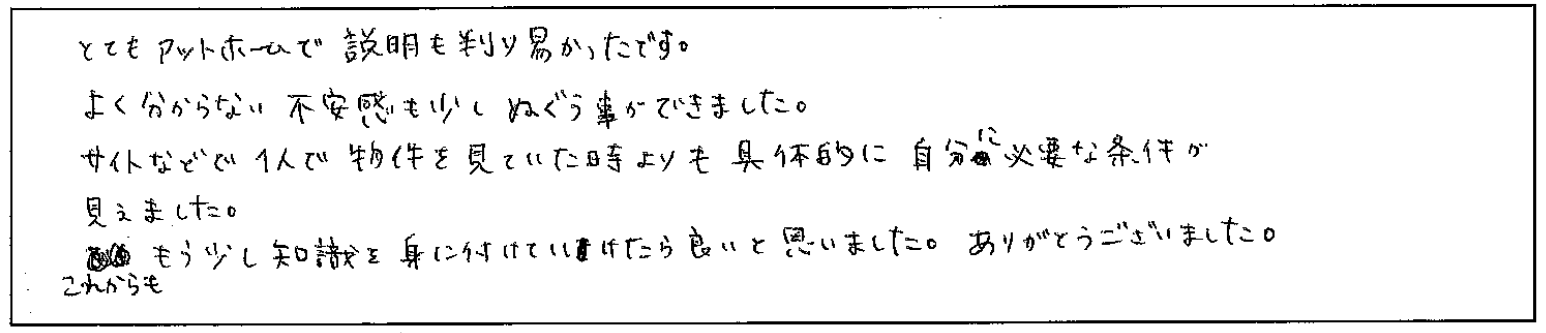 とてもアットホームで説明も判り易かったです。
よく分からない不安感も少しぬぐう事ができました。
サイトなどで1人で物件を見ていた時よりも具体的に自分に必要な条件が
見えました。
これからももう少し知識を身に付けていけたら良いと思いました。ありがとうございました。